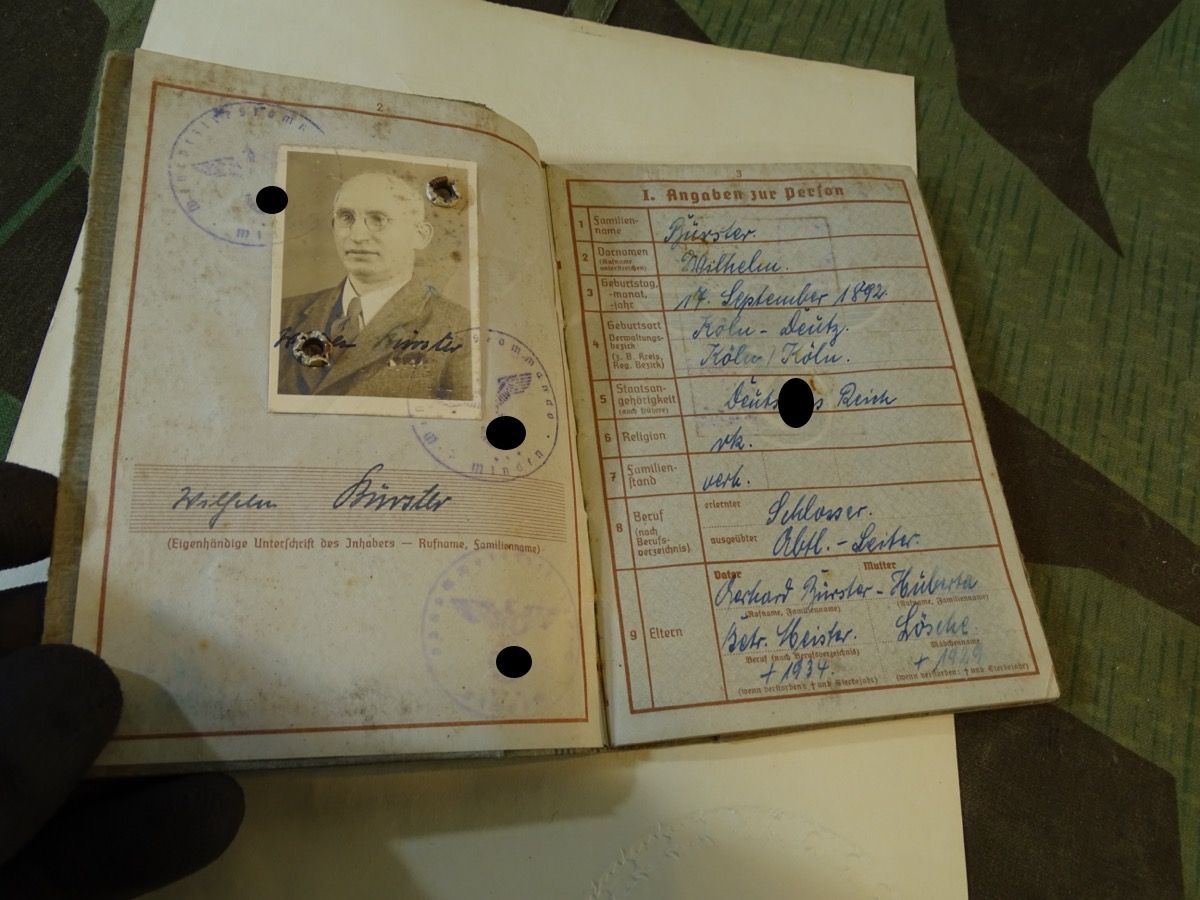 2
Wilhelm Bürster
(Eigenhändige Unterschrift des Inhabers — Rufname, Familienname)
Minden
3
I. Angaben zur Person
1 Familien-
name
Bürster.
2 Vornamen
(Rufname
unterstreichen)
Wilhelm.
3 Geburtstag,
-monat,
-jahr
17. September 1892.
4 Geburtsort
Verwaltungs-
bezirk
(z. B. Kreis,
Reg. Bezirk)
Köln - Deutz.
Köln / Köln.
5 Staatsan-
gehörigkeit
(auch frühere)
Deut s Reich
6 Religion
rk.
7 Familien-
stand
verh.
8 Beruf
(nach
Berufs-
verzeichnis)
erlernter
Schlosser.
ausgeübter
Abtl. - Leiter.
9 Eltern
Vater Mutter
Gerhard Bürster - Huberta
(Rufname, Familienname) (Rufname, Familienname)
Betr. Meister. Lösche.
Beruf (nach Berufsverzeichnis) Mädchenname
+ 1934. + 1929
(wenn verstorben: † und Sterbejahr) (wenn verstorben: † und Sterbejahr)